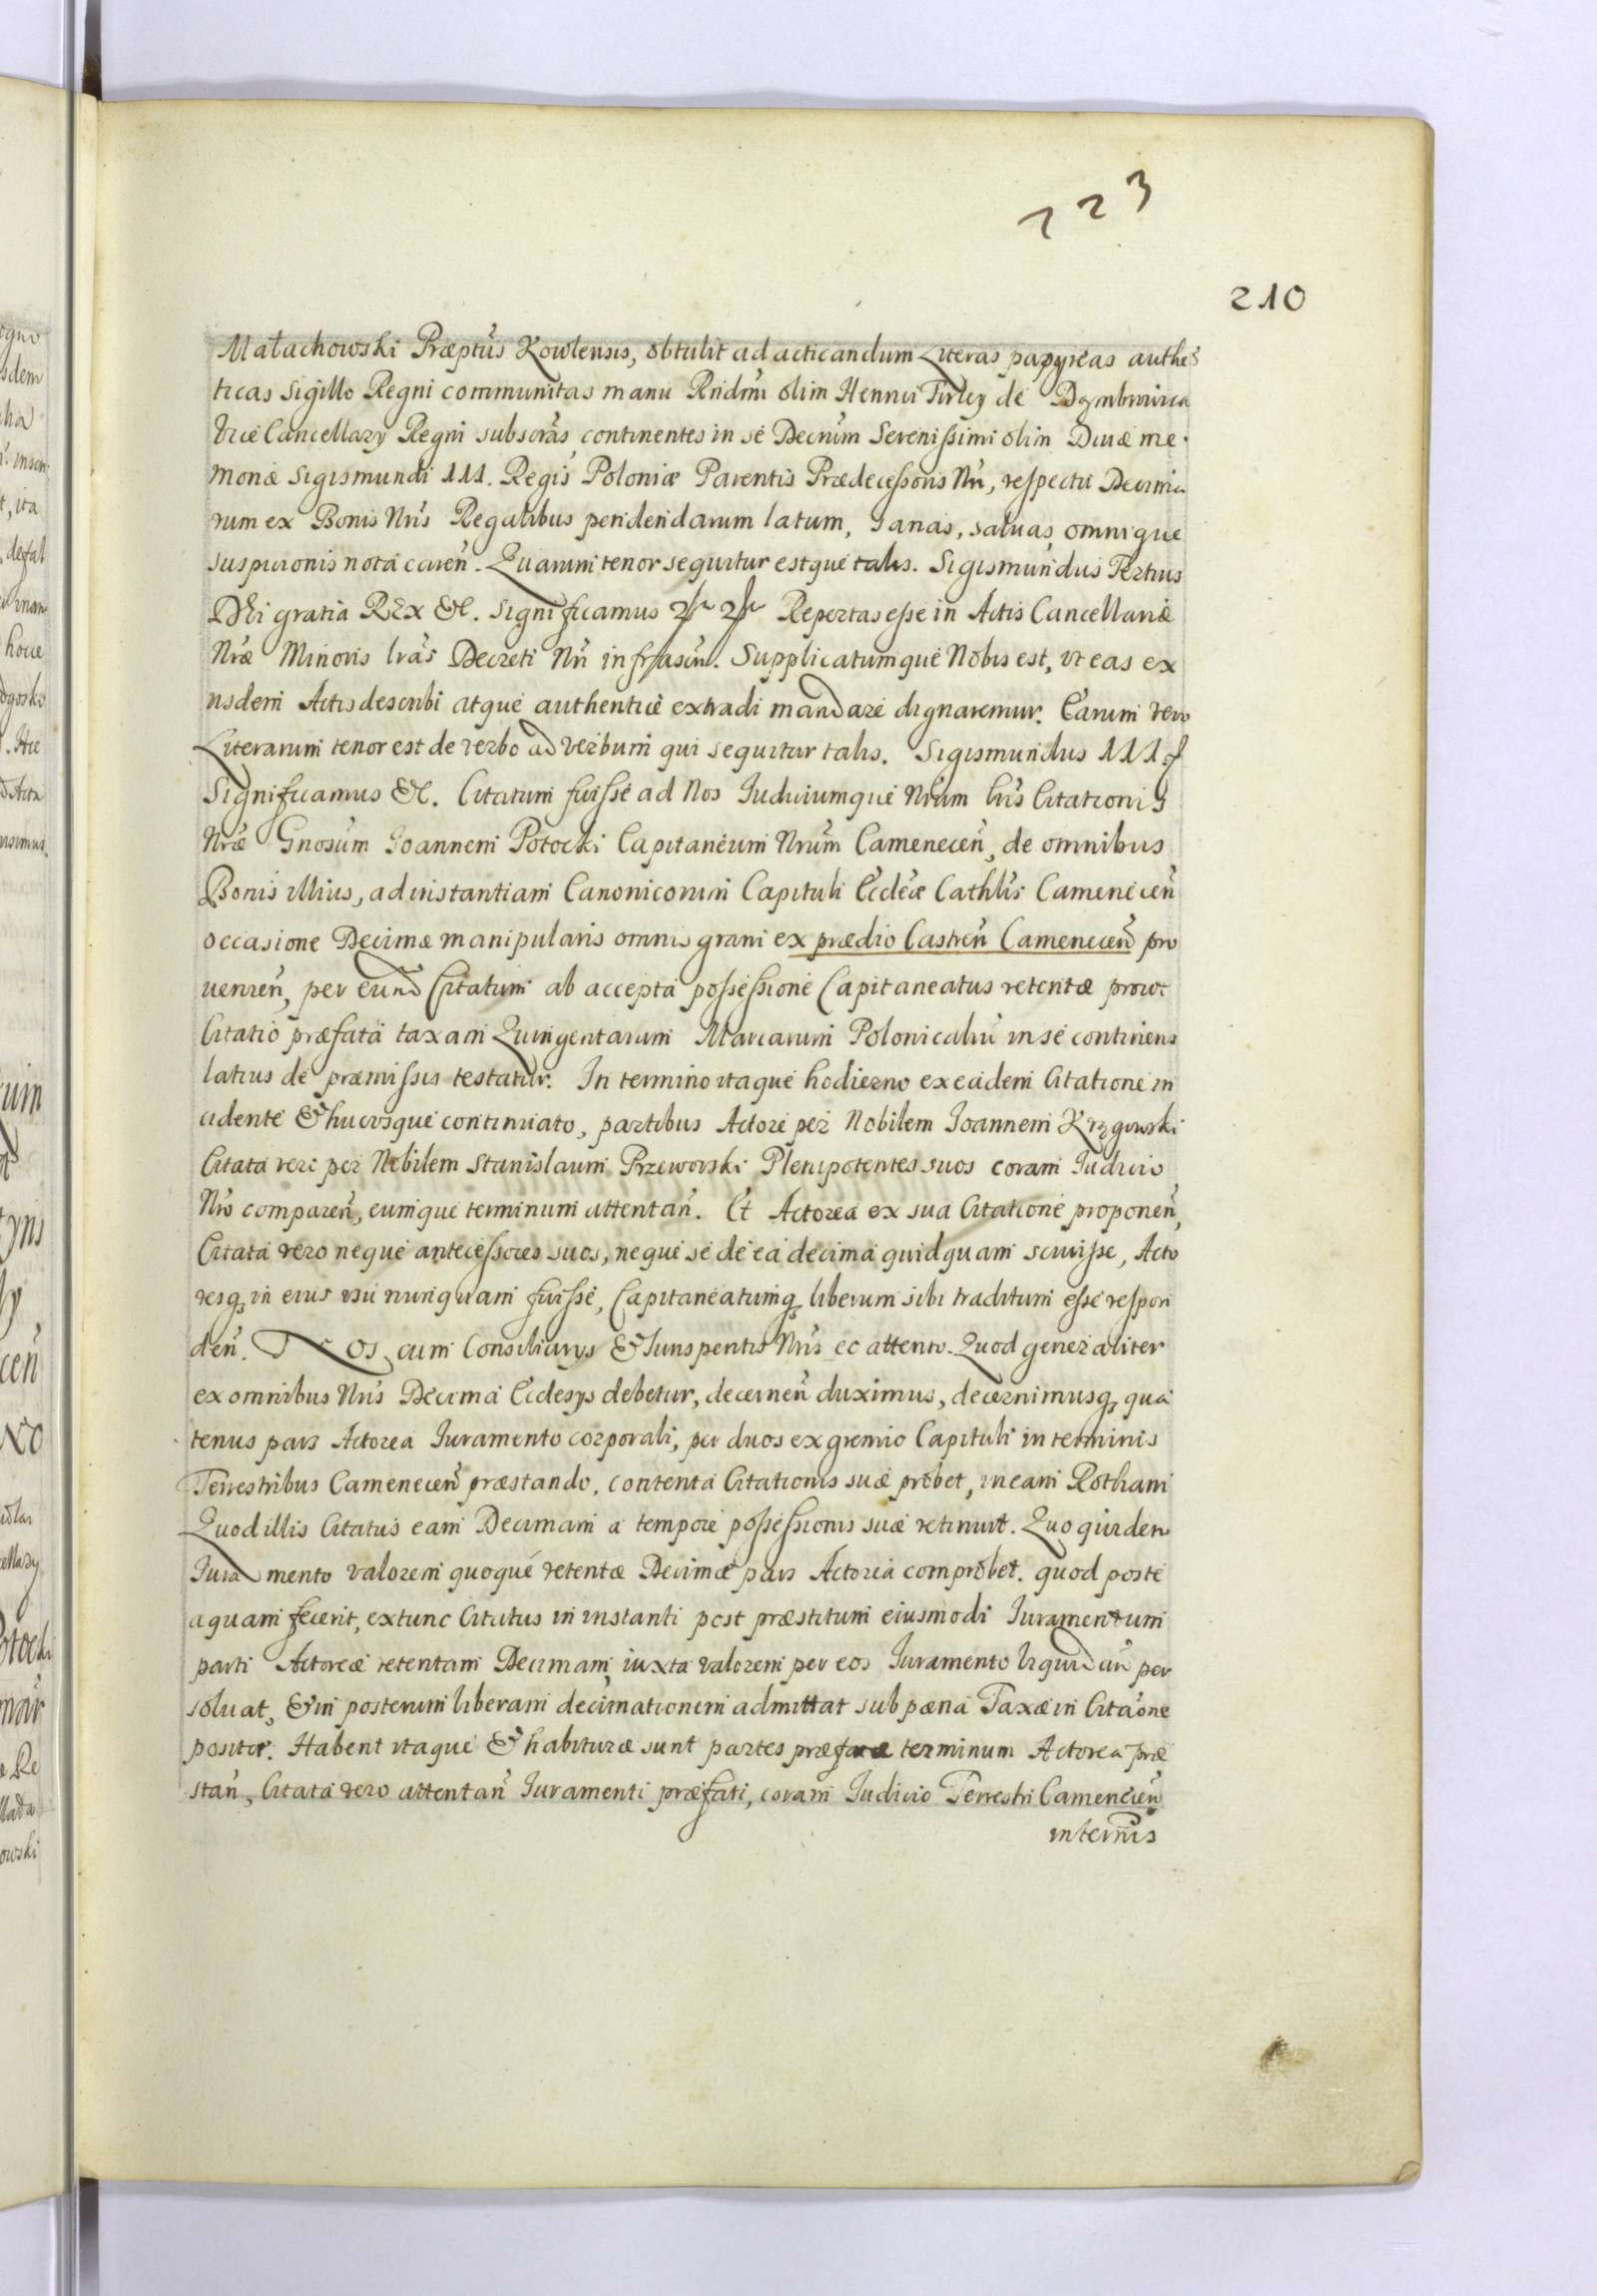 223
210
Małachowski Præptûs Kowlensis, obtulit ad acticandum Literas papyreas authe͠
ticas Sigillo Regni communitas manu Rndm̃i olim Henrici Firley de Dąmbrowica
Vice Cancellary Regni subscr̃as continentes in se Decrũm Serenissimi olim Divæ me
moriæ Sigismundi 111. Regis Poloniæ Parentis Prædecessoris Nr̃i, respectu Decima
rum ex Bonis Nr̃is Regalibus pendendarum latum, sanas, salvas, omnique
suspicionis nota caren̄. Quarum tenor sequitur estque talis. Sigismundus Tertius
DEi gratia REx &c. Significamus Repertas esse in Actis Cancellariæ
Nr̃æ Minoris lr̃as Decreti Nr̃i infrascr̃. Supplicatumque Nobis est, vt eas ex
ijsdem Actis describi atque authentice extradi mandare dignaremur. Earum vero
Literarum tenor est de verbo ad verbum qui sequitur talis. Sigismundus 111
Significamus &c. Citatum fuisse ad Nos Iudiciumque Nr̃um lr̃is Citationis
Nr̃æ Gnosum Ioannem Potocki Capitaneum Nr̃um Camenecen̄, de omnibus
Bonis illius, ad instantiam Canonicorum Capituli Eccl̃æ Cathl̃is Camenecen̄
occasione Decimæ manipularis omnis grani ex prædio Castren̄ Camenecen̄ pro
venien̄, per eund Citatum ab accepta possessione Capitaneatus retentæ prout
Citatio præfata taxam Quingentarum Marcarum Polonicaliũ in se continens
latius de præmissis testatur. In termino itaque hodierno ex eadem Citatione in
cidente & hucusque continuato, partibus Actore per Nobilem Ioannem
Citata vero per Nobilem Stanislaum Przeworski Plenipotentes suos coram Iudicio
Nr̃o comparen̄, eumque terminum attentan̄. Et Actorea ex sua Citatione proponen̄,
Citata vero neque antecessores suos, neque se de ea decima quidquam scivisse, Acto
resq; in eius usu nunquam fuisse, Capitaneatumq; liberum sibi traditum esse respon
den̄. Nos cum Consiliarys & Iurisperitis Nr̃is eo attento. Quod generaliter
ex omnibus Nr̃is Decima Ecclesys debetur, decernen̄ duximus, decernimusq; qua
tenus pars Actorea Iuramento corporali, per duos ex gremio Capituli in terminis
Terrestribus Camenecen̄ præstando, contenta Citationis suæ probet, in eam Rotham
Quod illis Citatus eam Decimam a tempore possessionis suæ retinuit. Quo quidem
Iuramento valorem quoque retentæ Decimæ pars Actorea comprobet. quod poste
aquam fecerit, extunc Citatus in instanti post præstitum eiusmodi Iuramentum
parti Actoreæ retentam Decimam, iuxta valorem per eos Iuramento liquidan̄ per
solvat, & in posterum liberam decimationem admittat sub pæna Taxæ in Citãone
positæ. Habent itaque & habituræ sunt partes præfatæ terminum Actorea præ
stan̄, Citata vero attentan̄ Iuramenti præfati, coram Iudicio Terrestri Camenecen̄
in termĩs